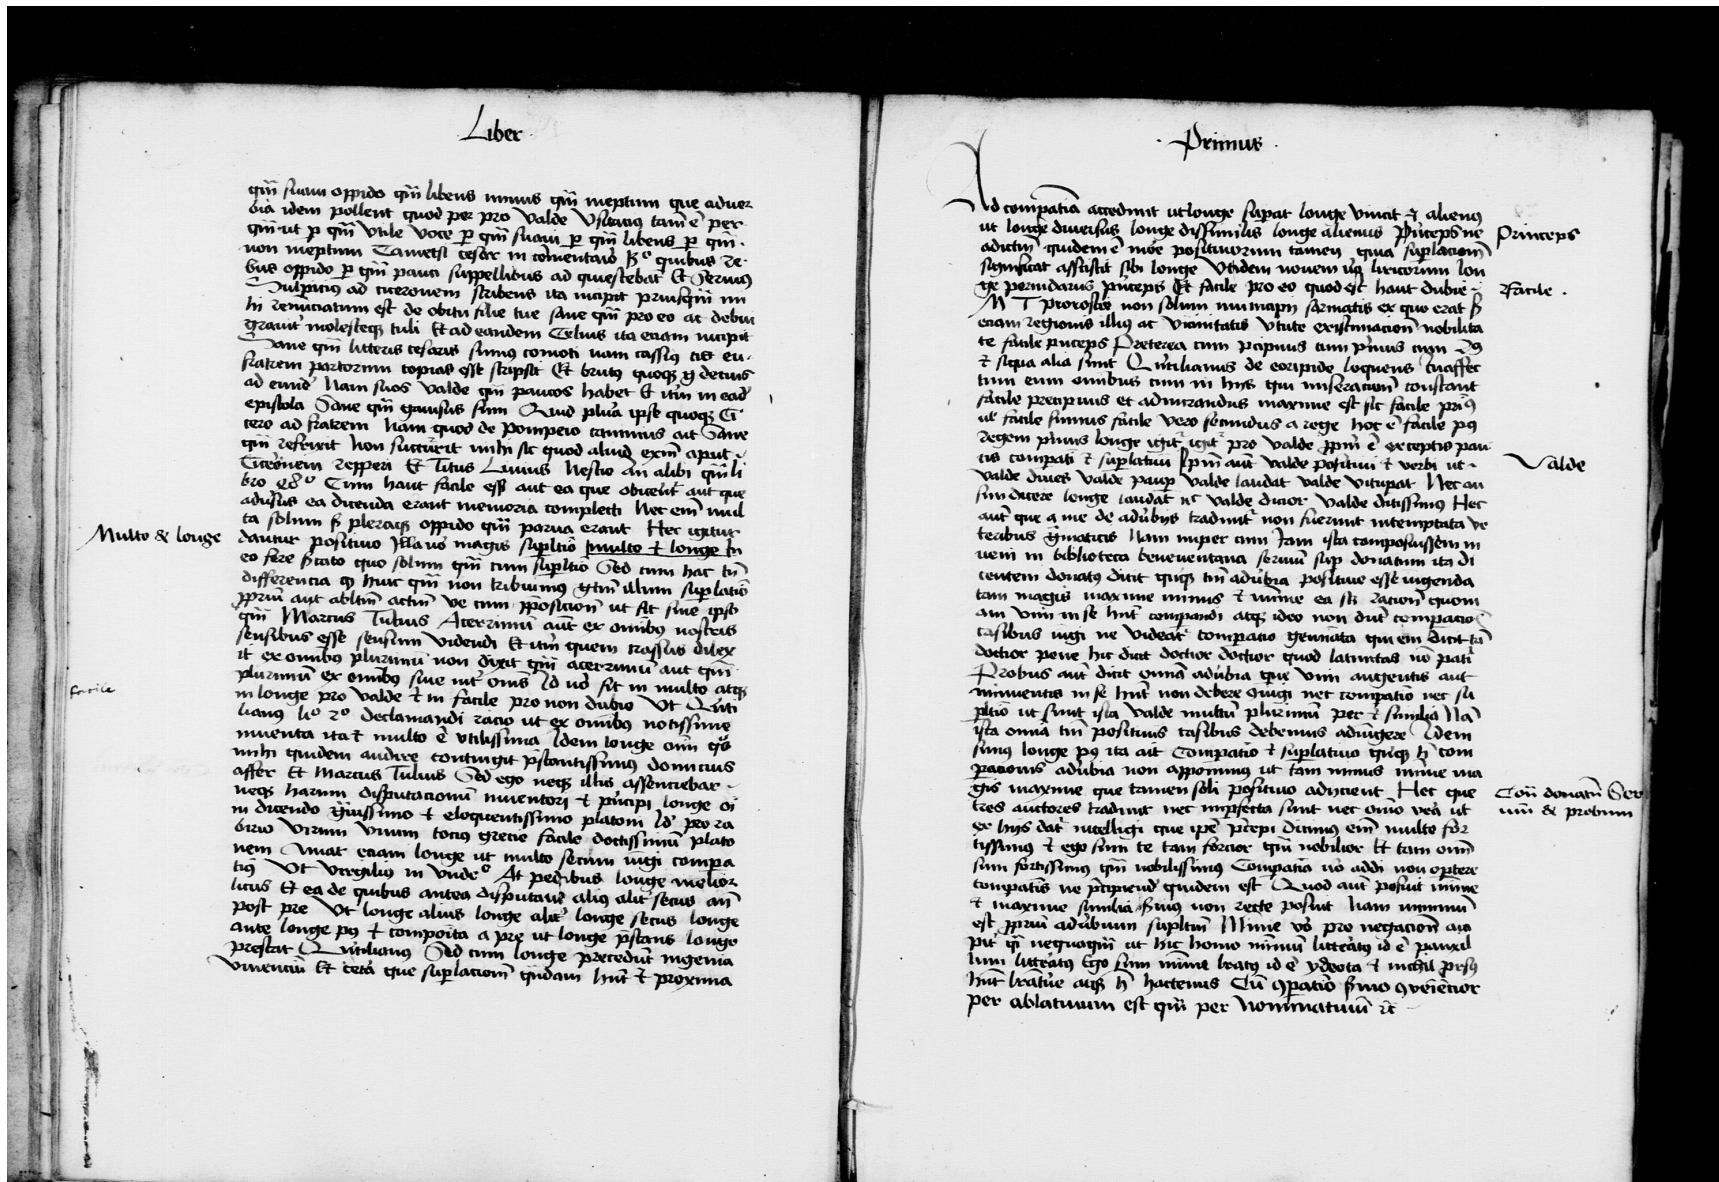 Liber
qm̄ suaui oppido qm̄ libens nimis qm̄ ineptum que aduer
bia idem pollent quod per pro valde vsitatius tam̄ ē per
qm̄ ut p qm̄ vtile voce p qm̄ suaui p qm̄ libens p qm̄
non ineptum Tametsi cesar in cōmentario quibus re
bus oppido p qm̄ pauci suppellibus ad quiescebat Et Seruius
Sulpicius ad ciceronem scribens ita incipit priusqm̄ mi
hi renūciatum est de obitu filie tue sane qm̄ pro eo ac debui
grauit̄ molesteqȝ tuli Et ad eandem Celius ita eciam incipit
Sane qm̄ litteris cesaris sumus cōmoti nam cassius cis eu
fratem partorum copias esse scripsit Et brutus quoqȝ decius
ad eund̄ Nam suos valde qm̄ paucos habet Et itm̄ in ead̄
epistola Sane qm̄ gauisus sum Quid plura ipse quoqȝ Ci
cero ad fratrem Nam quod de pompeio caninius ait Sane
qm̄ refrixit Non succurit mihi sic quod aliud exm̄ aput
Ciceronem repperi Et Titus Liuius Nescio an alibi qm̄ li
bro Cum haut facile esse aut ea que obicent̄ aut que
aduersus ea dicenda erant memoria complecti Nec em̄ mul
ta solum s pleraqȝ oppido qm̄ parua erant Hec igitur
Multo & longe
dantur positiuo Illa uō magis suplt̄io multo & longe In
eo fere s̄tato quo solum qm̄ cum suplt̄io Sed cum hac tn̄
differencia qȝ huic qm̄ non tribuimus illum suplatiō
pprium aut abltm̄ actm̄ ve cum pposicion̄ ut fit siue ipso
qm̄ Marcus Tulius Acerrimū aut̄ ex omibus nostris
sensibus esse sensum videndi Et itm̄ quem crassus dilex
it ex omibus plurimū non dixit qm̄ acerrimū aut qm̄
plurimū ex omibus siue int̄ omīs Id uō fit in multo atqȝ
facile
in longe pro valde & in facile pro non dubio Ut Qūti
lianus liº 2º declamandi racio ut ex omibus notissime
inuenta ita & multo ē vtilissima Idem longe
mihi quidem audire contingit pstantissimus domicius
affer Et Marcus Tulius Sed ego neqȝ illis assenciebar
neqȝ harum disputacionū inuentori & pncipi longe oī
in dicendo grauissimo & eloquentissimo platoni Id pro ra
birio virum vnum tocius grecie facile doctissimū plato
nem Vnat eciam longe ut multo secum iungi compa
tiuū Ut Virgilius in vndeº At pedibus longe melior
licus Et ea de quibus antea disputaui alius alit̄ secus an̄
post pre Ut longe alius longe alit̄ longe secus longe
ante longe pꝰ & compoita a pre ut longe pstans longe
prestat Qūtilianus Sed cum longe precedūt ingenia
viuenciū Et cetera que suplacionē quidam hn̄t & proxima
Primus
Ad compatiā accedunt ut longe supat longe vincit & alienus
ut longe diuersus longe dissimilis longe alienus Princeps ne
Princeps
adictm̄ quidem ē mōe positiuorum tamen quia suplacionē
significat assciscit sibi longe Vtidem nouem liricorum lon
ge pernidarus princeps Et facile pro eo quod est haut dubie
Facile
M T prorostio non solum municipij sarmatis ex quo erat s̄
eciam regionis illius ac vicinitatis vtute existimacion̄ nobilita
te facile princeps Preterea cum pcipuus cum primus cum
& siqua alia sunt Qūtilianus de eoripide loquens
tum eum omibus cum in hijs qui miseracion̄ constant
facile precipuus et admirandus maxime est sic facile primus
ut facile sumus facile vero secundus a rege hoc ē facile pꝰ
regem primus longe igit̄ igit̄ pro valde ē exceptis pau
cis compati & suplatiuū aut̄ valde positiui & verbi ut
Valde
valde diues valde paup valde laudat valde vitupat Nec au
sim dicere longe laudat nec valde dicior valde ditissimus Hec
aut̄ que a me de adūbijs tradunt̄ non fuerunt intemptata ve
teribus ḡmaticis Nam nuper cum Iam ista composuissem in
ueni in biblioteca beneuentana seruiū sup donatum ita di
centem donatus dicit quinqȝ tm̄ adūbia positiuo esse iungenda
tam magis maxime minus & mīme ea racion̄ quom
am vim in se hn̄t compandi atqȝ ideo non dūt̄ compatio
casibus iugi ne videat̄ compatio geminata qui em̄ dicit tā
doctior pene hic dicit doctior doctior quod latinitas nō pati
Probus aut̄ dicit omnā adūbia que vim augentis aut
minuentis in se hn̄t non debere iungi nec compatio nec su
pltio ut sunt ista valde multū plurimū per & similia Nā
ista omnā tm̄ positiuis casibus debemus adiungere Idem
simus longe pꝰ ita ait Compatio & suplatiuo quinqȝ h̄ com
paracionis adūbia non apponimus ut tam minus mīme ma
gis maxime que tamen soli positiuo adiciunt Hec que
Con̄ donatū Ser
tres auctores tradunt nec imperfecta sunt nec omīo vera ut
uiū & probum
ex hijs dat̄ intelligi que ipse prepi Dicimus em̄ multo for
tissimus & ego sum te tam forcior qm̄ nobilior Et tam omn̄
sum fortissimus qm̄ nobilissimus Compatiā uō addi non optere
compatiis ne pcipiend̄ quidem est Quod aut̄ posuit mīme
& maxime similia non recte posuit Nam minimū
est pprium adūbium supltm̄ Mīme vō pro negacion̄ acci
pit̄ qi nequaqm̄ ut hic homo mīmū litteratus id ē pauxil
lum litteratus Ego sum mīme beatus id ē ydeota & nichil prsꝰ
hn̄t literature atqȝ h̄ hactenus Cū compatio sīmo cōueiēcior
per ablatiuum est qm̄ per Nominatiuū &c